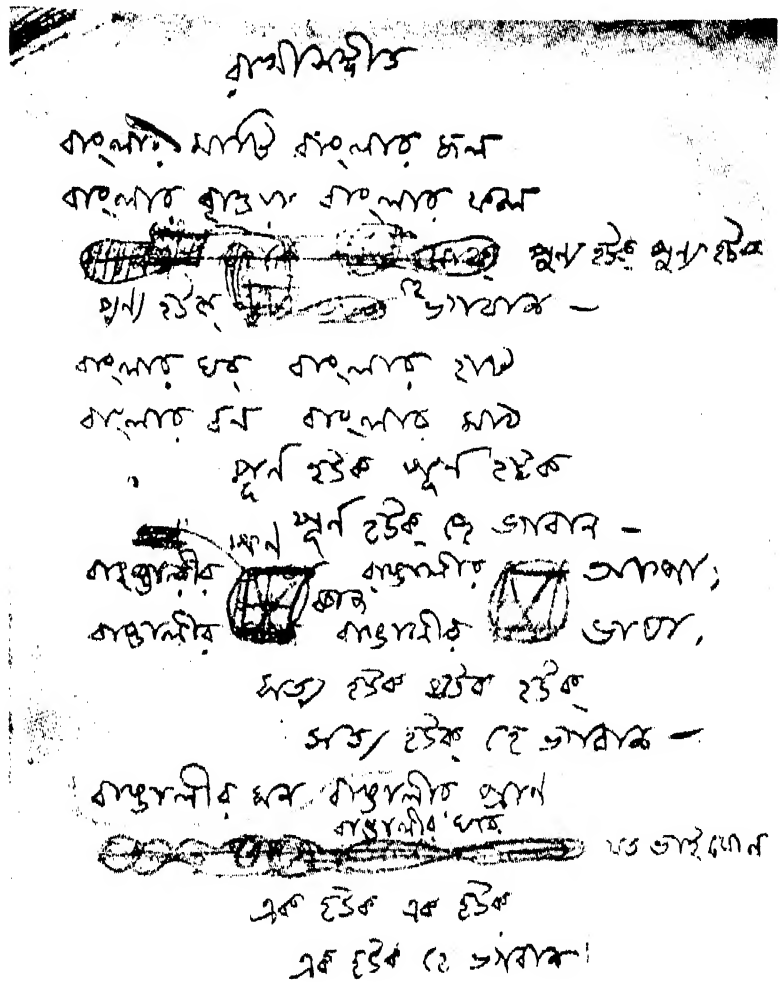 রাখীসঙ্গীত
বাংলার মাটি বাংলার জল
বাংলার হাওয়া বাংলার ফল
পুণ্য হউক্ পুণ্য হউক
পুণ্য হউক্ হে ভগবান —
বাংলার ঘর বাংলার হাট
বাংলার বন বাংলার মাঠ
পূর্ণ হউক পূর্ণ হউক
পূর্ণ হউক্ হে ভগবান —
বাঙ্গালীর পণ বাঙ্গালীর আশা,
বাঙ্গালীর কাজ বাঙ্গালীর ভাষা,
সত্য হউক হউক হউক্
সত্য হউক্ হে ভগবান —
বাঙ্গালীর মন বাঙ্গালীর প্রাণ
বাঙ্গালীর ঘরে
যত ভাই বোন
এক হউক এক হউক
এক হউক হে ভগবান।